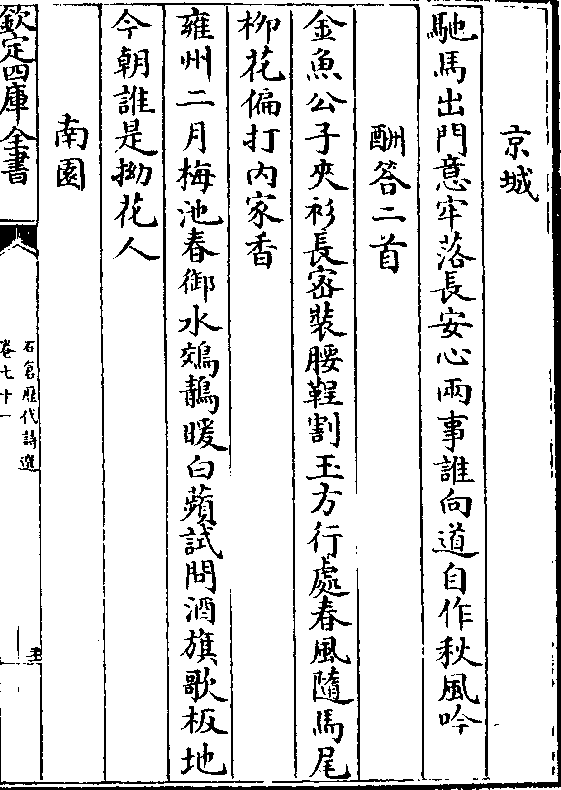 京城
馳馬出門意牢落長安心兩事誰向道自作秋風吟
酬答二首
金魚公子夾衫長密裝腰鞓割玉方行處春風隨馬尾
柳花偏打内家香
雍州二月梅池春御水鵁鶄暖白蘋試問酒旗歌板地
今朝誰是拗花人
南園
欽定四庫全書
石倉歷代詩選
卷七十一